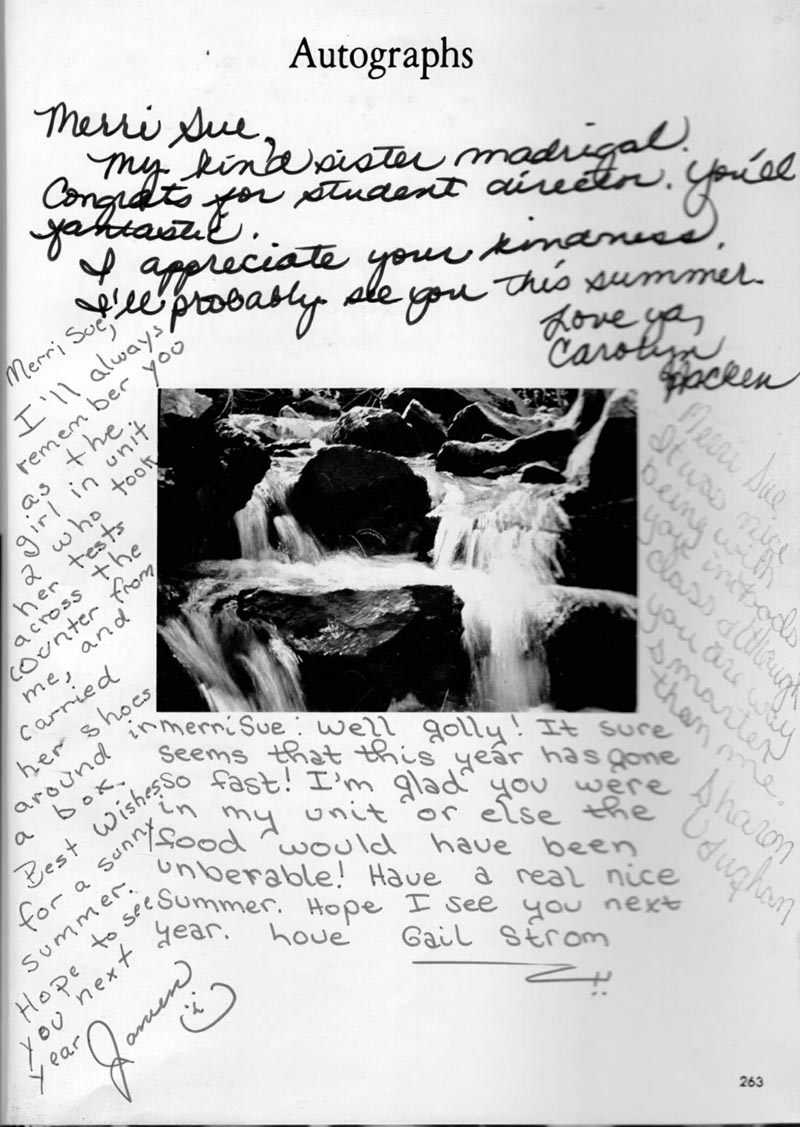 Autographs
Merri Sue,
My kind sister madrigal.
Congrats for student director. You'll
fantastic.
I appreciate your kindness.
I'll probably see you this summer.
Love ya,
Carolyn
Merri Sue,
I'll always
remember you
as the
girl in unit
2 who took
her tests
across the
counter from
me, and
carried
her shoes
around in
a box.
Best Wishes
for a sunny
summer.
Hope to see
you next
year
Merri Sue
It was nice
being with
you in foods
class although
you are way
smarter
than me.
Sharon
Vaughan
merri Sue: Well golly! It sure
seems that this year has gone
so fast! I'm glad you were
in my unit or else the
food would have been
unberable! Have a real nice
Summer. Hope I see you next
year. Love Gail Strom
263